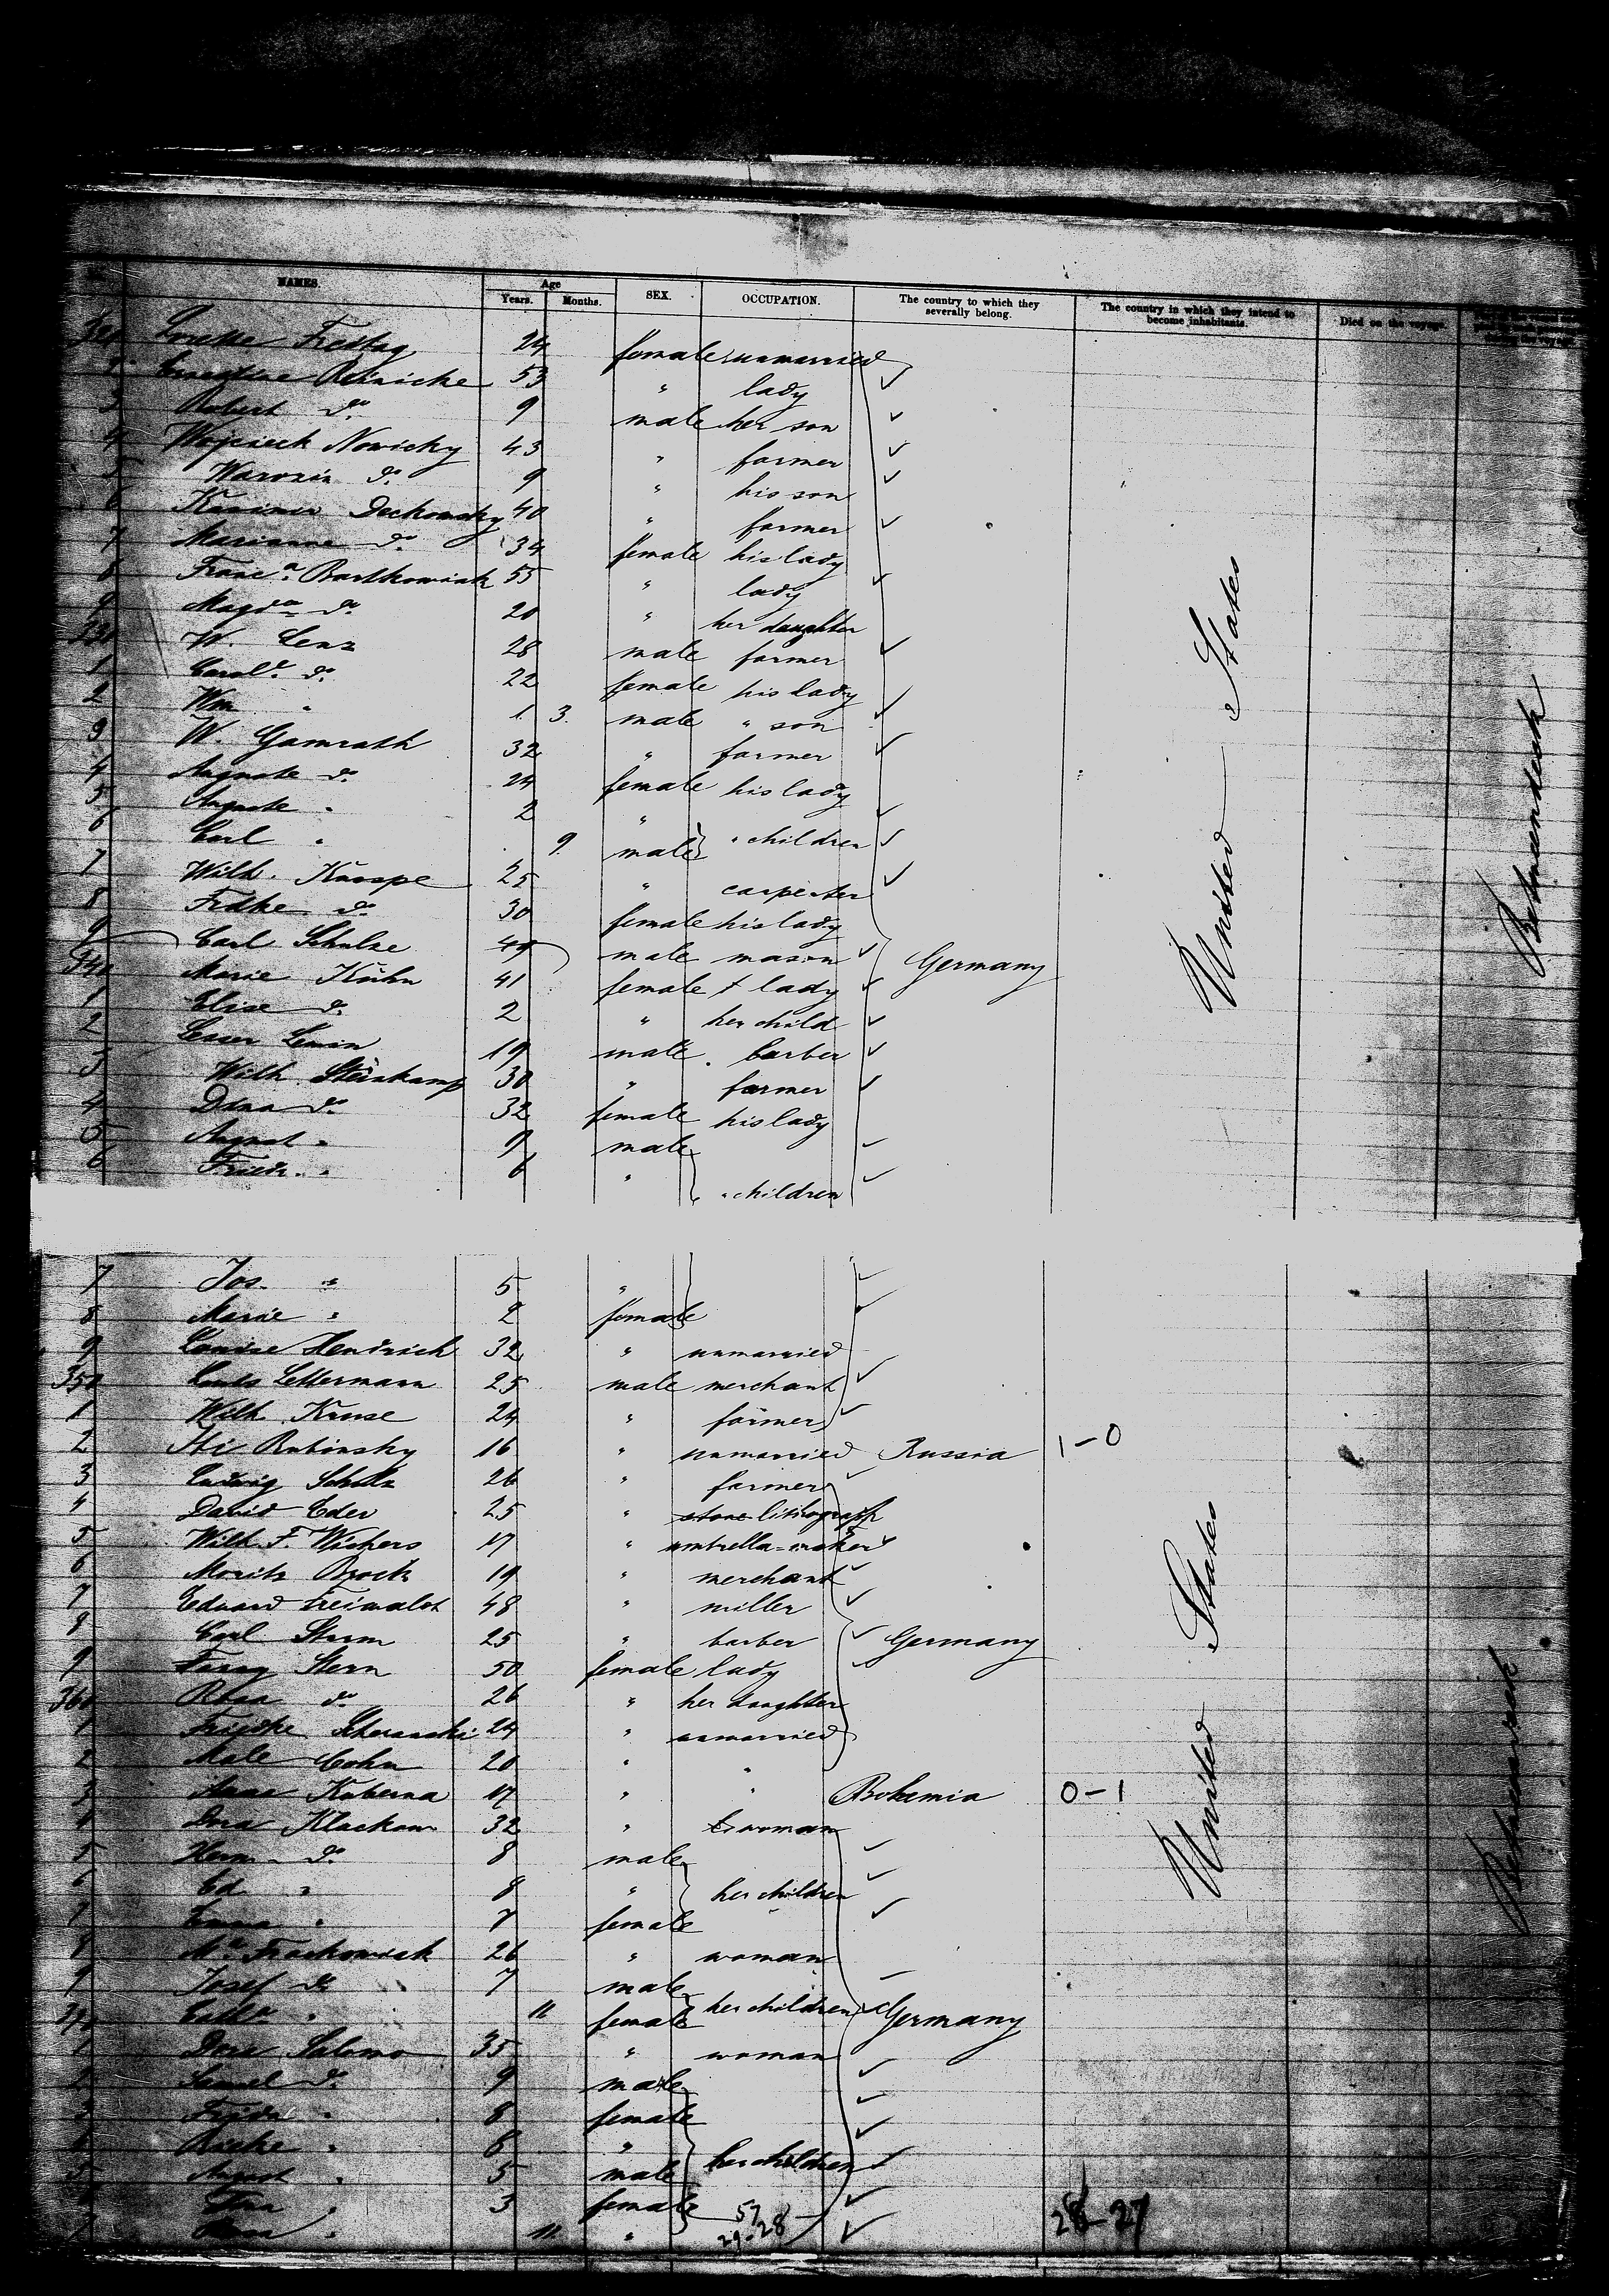 NAMES. Age Years. Months. SEX. OCCUPATION. The country to which they severally belong. The country in which they intend to become inhabitants. Died on the voyage.
Freitag 24 female unmarried
2 Reinicke 53 " lady
3 Robert do 9 male her son
4 Wojciech Nowicky 43 " farmer
5 do 9 " his son
6 Kasimir Dechowsky 40 " farmer
7 Marianne do 34 female his lady
8 Franca Bartkowiak 55 " lady
9 Magda do 20 " her daughter
330 W. Lenz 28 male farmer
1 Carole do 22 female his lady
2 Wm " 1 3. male " son
3 W. Gamrath 32 " farmer
4 Auguste do 24 female his lady
5 Auguste " 2 "
6 Carl " 9. male " children
7 Wilh. Knospe 25 " carpenter
8 Fridke do 30 female his lady
9 Carl Schulze 49 male mason Germany
340 Marie Kühn 41 female lady
1 Elise do 2 " her child
2 Lesser Lewin 19 male barber
3 Wilh. Steinkamp 30 " farmer
4 Dina do 32 female his lady
5 August " 9 male
6 Friedr. " 6 " " children
United States
7 Jos. " 5 "
8 Marie " 2 female
9 Louise Hendrich 32 " unmarried
350 Louis Lettermann 25 male merchant
1 Wilh. Kruse 24 " farmer
2 Rubinsky 16 " unmarried Russia 1-0
3 Ludwig Scholz 26 " farmer
4 David Eder 25 " stone lithograph
5 Wilh. F. Wichers 17 " umbrella-maker
6 Moritz Brock 19 " merchant
7 Eduard Freiwaldt 48 " miller
8 Carl Sturm 25 " barber Germany
9 Fanny Stern 50 female lady
360 Rosa do 26 " her daughter
1 Friedke 24 " unmarried
2 Male Cohn 20 " "
3 Anna Kuberna 17 " " Bohemia 0-1
4 Dora Klackow 32 " woman
5 Herm. do 8 male
6 Ed. " 8 " her children
7 Emma " 7 female
8 Ma Frackowiak 26 " woman
9 Josef do 7 male
370 " 11 female her children Germany
1 Dora Salomo 35 " woman
2 Samuel do 9 male
3 Frieda " 8 female
4 Rieke " 6 "
5 August " 5 male her children
6 " 3 female 57
7 Rosa " 11 " 29-28 28-27
United States